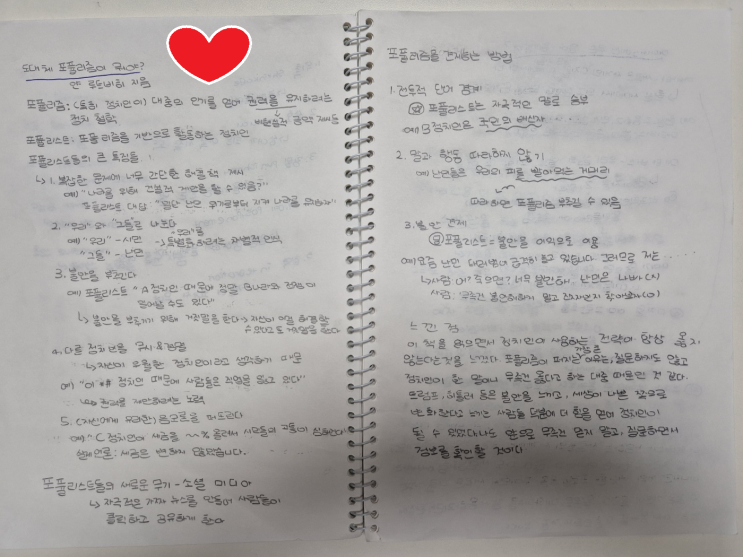 도대체 포퓰리즘이 뭐야?
얀 루드비히 지음
포퓰리즘: (특히 정치인이) 대중의 인기를 얻어 권력을 유지하려는
정치 철학
↳ 비현실적 공약 제시 등
포퓰리스트: 포퓰리즘을 기반으로 활동하는 정치인
포퓰리스트들의 큰 특징들:
↳ 1. 복잡한 문제에 너무 간단한 해결책 제시
예) "나라를 위해 건설적 계획을 할 수 있음?"
포퓰리스트 대답 "일단 난민 위기로부터 지켜 나라를 위하자"
2. "우리"와 "그들"로 나눈다
예) "우리" - 시민
"우리"를
→ 특별하게 하려는 차별적 인식
"그들" - 난민
3. 불안을 부추긴다
예) 포퓰리스트 "A정치인 때문에 정말 B나라와 전쟁이
일어날 수도 있다"
↳ 불안을 부추기기 위해 거짓말을 한다 → 자신이 이걸 해결할
수 있다고도 거짓말을 한다
4. 다른 정치인을 무시 & 경멸
↳ 자신이 우월한 정치인이라고 생각하기 때문
예) "이 *# 정치인 때문에 사람들은 직업을 잃고 있다"
↳ 권리를 제한하려는 노력
5. (자신에게 유리한) 음모론을 퍼뜨린다
예) "C정치인이 세금을 ~~% 올려서 시민들의 고통이 심하다"
실제 언론: 세금은 변하지 않았습니다.
포퓰리스트들의 새로운 무기 - 소셜 미디어
↳ 자극적은 가짜 뉴스를 만들어 사람들이
클릭하고 공유하게 한다
포퓰리즘을 견제하는 방법
1. 전투적 단어 경계
포퓰리스트는 자극적인 말로 승부
예) B정치인은 국민의 배신자
2. 말과 행동 따라하지 않기
예) 난민들은 우리의 피를 빨아먹는 거머리
따라하면 포퓰리즘 부추길 수 있음
3. 불안 견제
포퓰리스트 = 불안을 이익으로 이용
예) 요즘 난민 대러범이 급격히 늘고 있습니다. 그러므로 저는...
↳ 사람: 어? 죽으면? 너무 불안해. 난민은 나빠 (X)
사람: 무조건 불안해하지 말고 진짜인지 확인해봐 (O)
느낀 점
이 책을 읽으면서 정치인이 사용하는 전략이 항상 옳지
않는다는 것을 느꼈다. 포퓰리즘이 퍼지는 이유는, 질문하지도 않고
정치인이 한 말이니 무조건 옳다고 하는 대중 때문인 것 같다.
트럼프, 히틀러 등은 불안을 느끼고, 세상이 나쁜 쪽으로
변화한다고 느끼는 사람들 덕분에 더 힘을 얻어 정치인이
될 수 있었다. 나도 앞으로 무조건 믿지 않고, 질문하면서
정보를 확인할 것이다